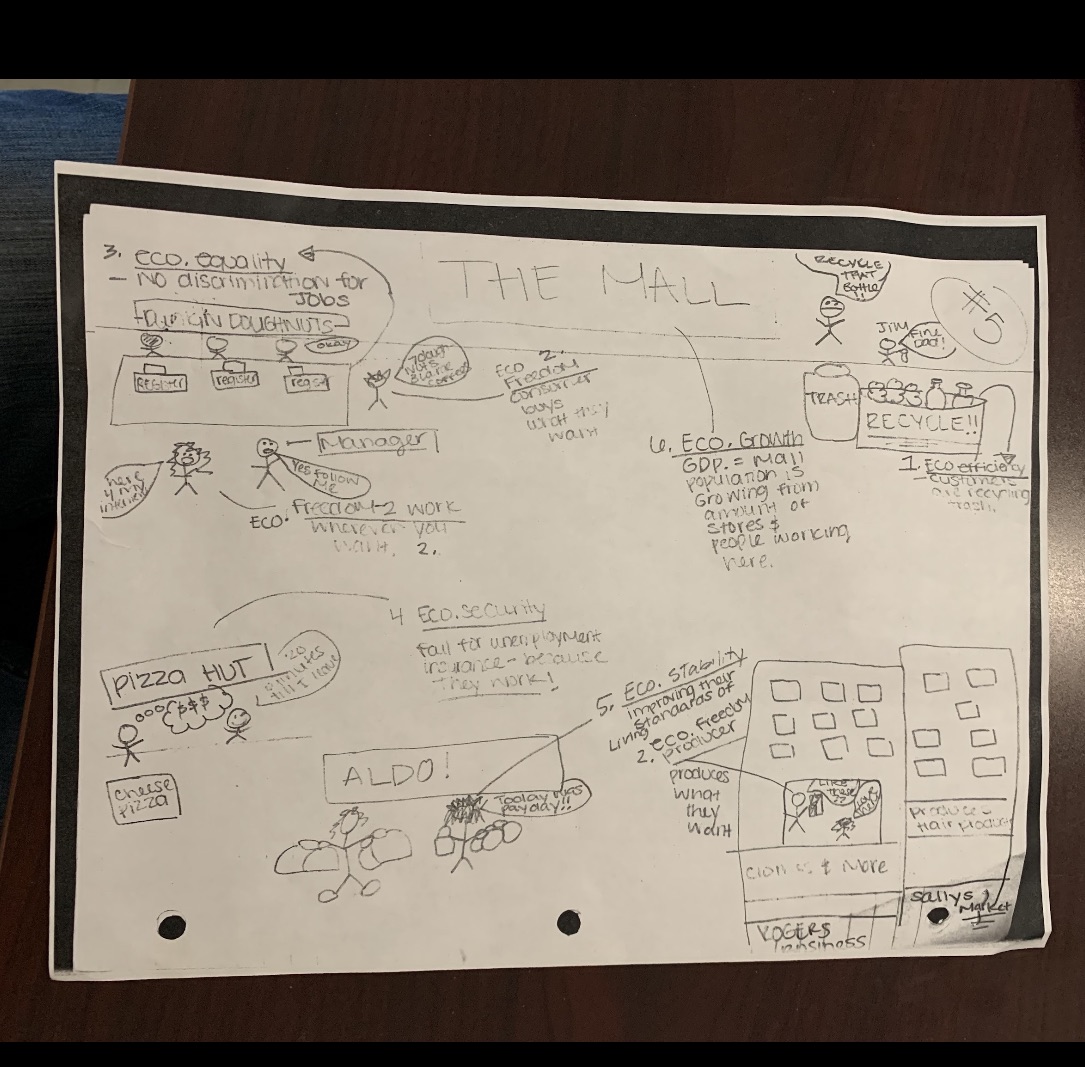 THE MALL
#5
3. eco. equality
- No discrimination for
Jobs
DUNKIN DOUGHNUTS
okay
REGISTER
register
regist
Manager
Yes follow
Me
here
4 my
interview
ECO. Freedom-2 work
wherever you
want. 2.
2.
ECO
Freedom
consumer
buys
what they
want
RECYCLE
THAT
BOTTLE!!
JIM
Fine
Dad!
TRASH
RECYCLE!!
1. ECO efficiency
- customers
are recycling
trash.
6. Eco. Growth
GDP. = Mall
population is
Growing from
amount of
stores &
people working
here.
4 Eco. Security
Fail for unemployment
insurance - because
they work!
pizza HUT
20
minutes
till I leave
$$$
cheese
pizza
ALDO!
Today was
payday!!
5. Eco. Stability
improving their
standards of
Living
2. eco. freedom
producer
produces
what
they
want
LIKE
these
??
& More
ROGERS
Business
produces
Hair produc
Sallys
Market